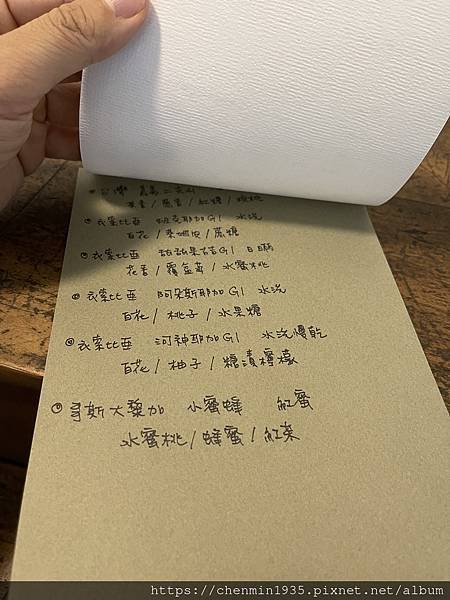 ◎台灣
果香 / / 紅糖 / 核桃
◎衣索比亞 班克耶加G1 水洗
白花 / 茉莉 / 蔗糖
◎衣索比亞 甜甜果吉G1 日曬
花香 / 覆盆莓 / 水蜜桃
◎衣索比亞 阿朵斯耶加G1 水洗
白花 / 桃子 / 水果糖
◎衣索比亞 河神耶加G1 水洗慢乾
白花 / 柚子 / 糖漬檸檬
◎哥斯大黎加 小蜜蜂 紅蜜
水蜜桃 / 蜂蜜 / 紅茶
https://chenmin1935.pixnet.net/album